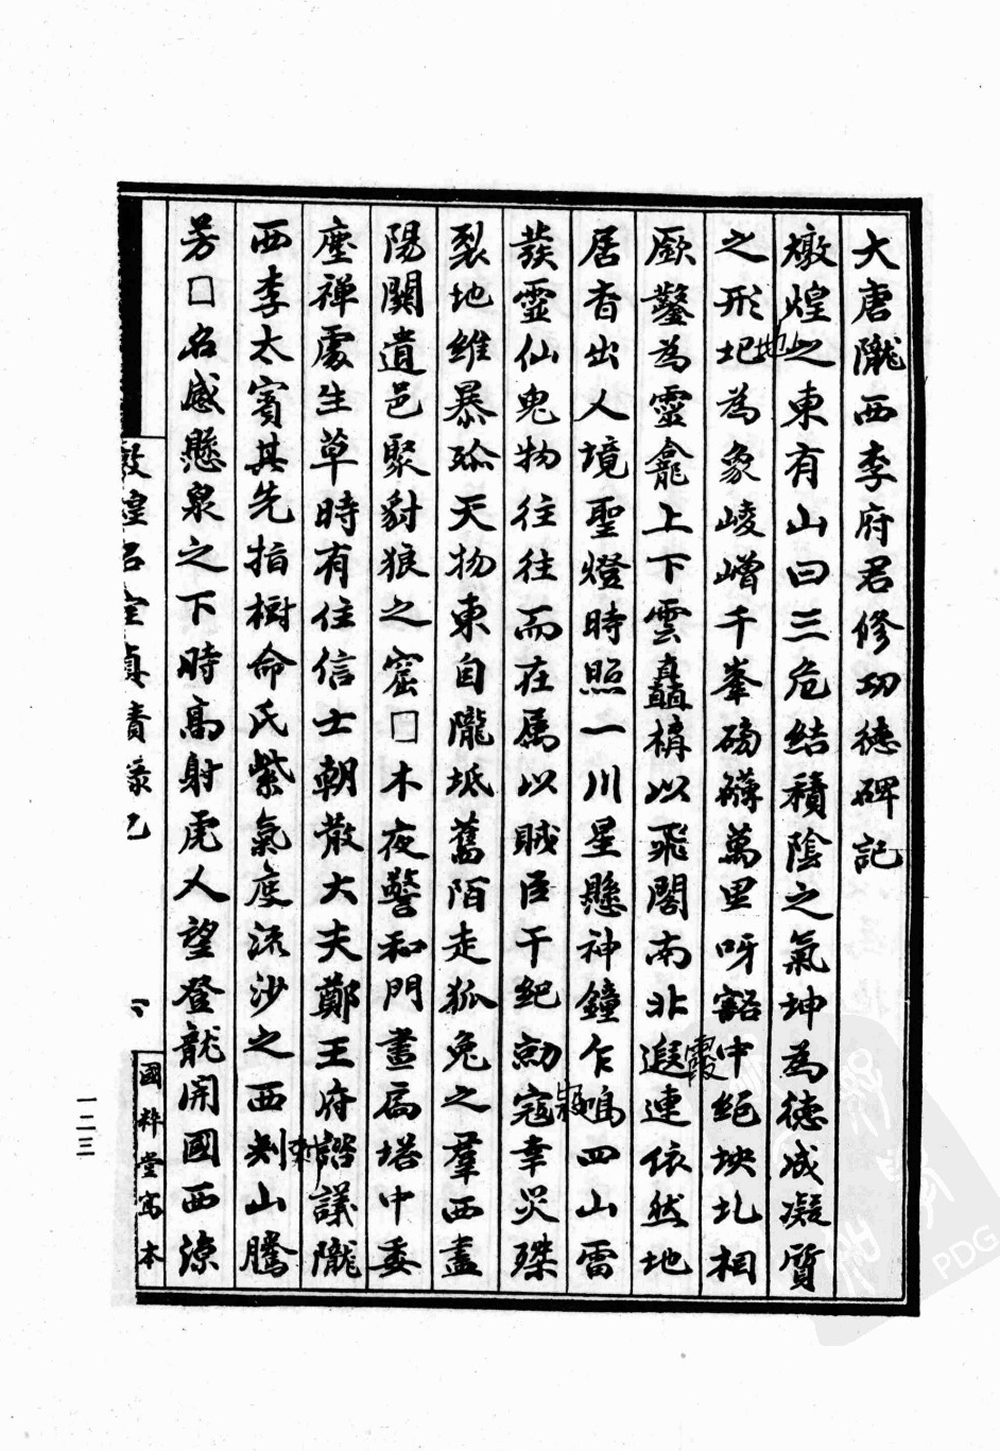 大唐隴西李府君修功德碑記
燉煌之東有山曰三危結積陰之氣坤為德成凝質
之形圮地為象崚嶒千峯磅礴萬里呀豁中絕坱圠相
嶔鑿為靈龕上下雲矗構以飛閣南北遐霞連依然地
居杳出人境聖燈時照一川星懸神鐘乍鳴四山雷
發靈仙鬼物往往而在属以賊臣干紀勍寇幸災磔
裂地維暴殄天物東自隴坻舊陌走狐兔之羣西盡
陽關遺邑聚豺狼之窟□木夜警和門晝扃塔中委
塵禅處生草時有住信士朝散大夫鄭王府諮議隴
西李太賓其先指樹命氏紫氣度流沙之西刺山騰
芳□名感懸泉之下時高射虎人望登龍開國西涼
敦煌石室真蹟錄己
國粹堂寫本
一二三